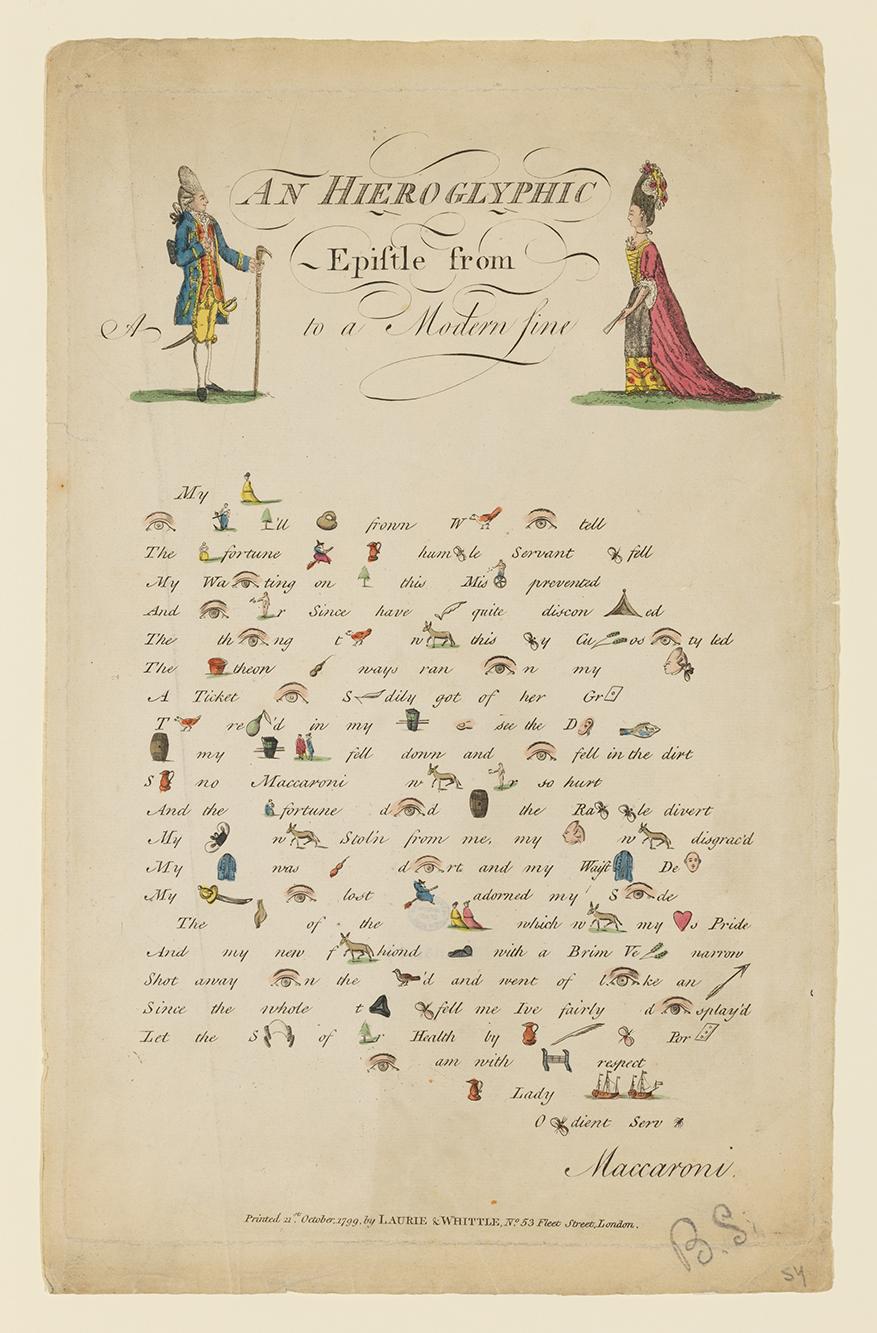 AN HIEROGLYPHIC
Epiſtle from
A to a Modern fine
My
'll frown W tell
The fortune hum le Servant fell
My Wa ting on this Mis prevented
And r Since have quite discon ed
The th ng t w this y Cu os ty led
The theon ways ran n my
A Ticket S dily got of her Gr
T re 'd in my see the D
my fell down and fell in the dirt
S no Maccaroni w r so hurt
And the fortune d d the Ra le divert
My w Stol'n from me, my w disgrac'd
My was d rt and my Waiſt De
My lost adorned my S de
The of the which w my s Pride
And my new f hiond with a Brim Ve narrow
Shot away n the 'd and went of l ke an
Since the whole t fell me Ive fairly d splay'd
Let the S of r Health by Por
am with respect
Lady
O dient Serv
Maccaroni.
Printed 21.st October, 1799, by LAURIE & WHITTLE, No. 53 Fleet Street, London.
B.S.
54